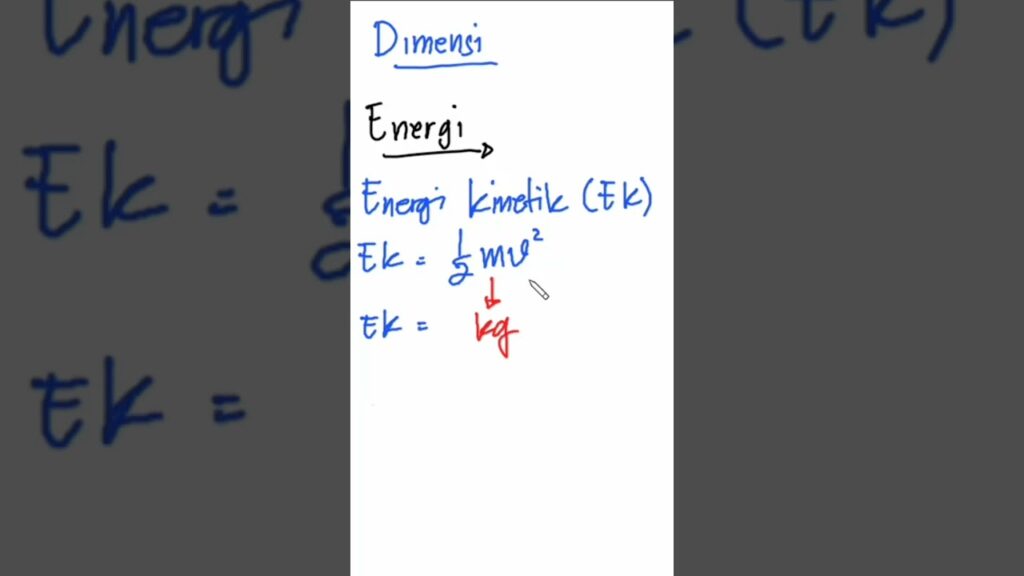 Dimensi
Energi
Energi kinetik (Ek)
Ek = 1/2 mv²
Ek = kg